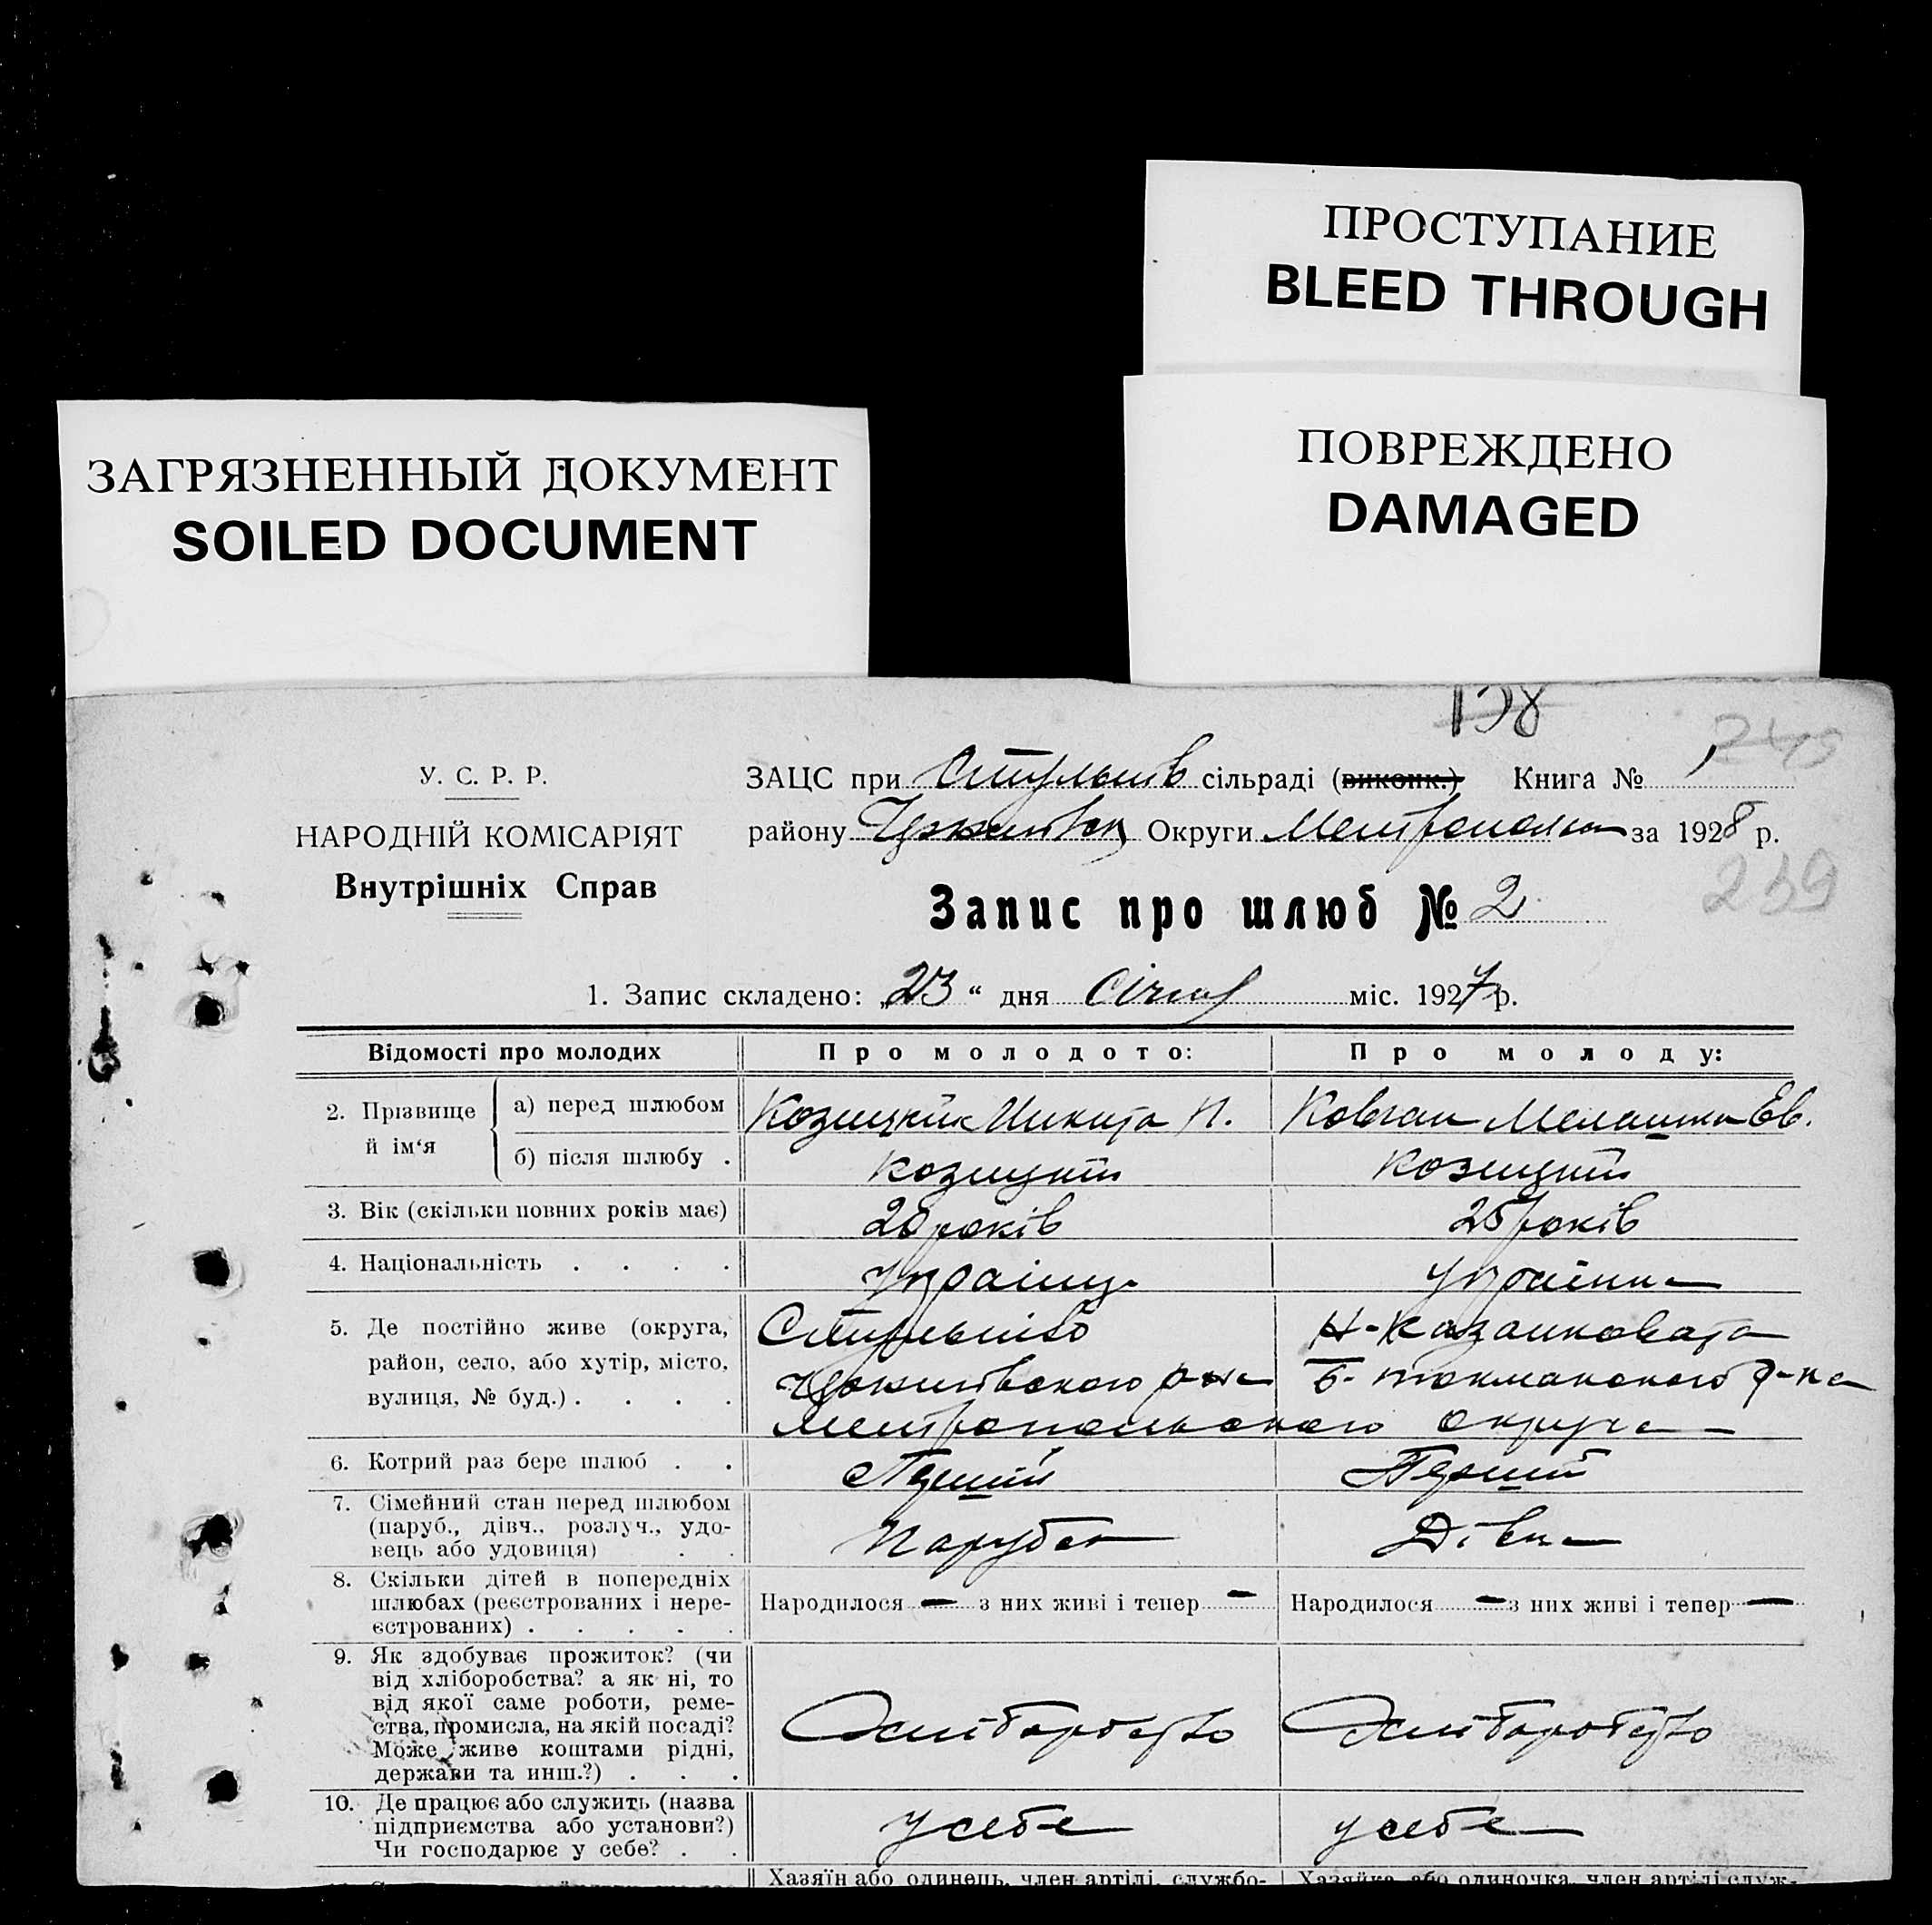 ПРОСТУПАНИЕ
BLEED THROUGH
ЗАГРЯЗНЕННЫЙ ДОКУМЕНТ
SOILED DOCUMENT
ПОВРЕЖДЕНО
DAMAGED
138
240
У. С. Р. Р.
НАРОДНІЙ КОМІСАРІЯТ
Внутрішніх Справ
ЗАЦС при сільраді (виконк.) Книга № 1
району Округи за 1928 р.
239
Запис про шлюб № 2
1. Запис складено: „23“ дня Січня міс. 1927 р.
Відомості про молодих Про молодого: Про молоду:
2. Прізвище й ім‘я
а) перед шлюбом Козицкий Микита П. Ковган Мелашка Єв.
б) після шлюбу . Козицкий Козицкий
3. Вік (скільки повних років має) років 25 років
4. Національність . . . . Українц. Українка
5. Де постійно живе (округа, район, село, або хутір, місто, вулиця, № буд.) . . . .
р-на
Б-токмакського р-на
Мелітопольського округа
6. Котрий раз бере шлюб . . Перший Перший
7. Сімейний стан перед шлюбом (паруб., дівч., розлуч., удовець або удовиця) . . Парубок Дівка
8. Скільки дітей в попередніх шлюбах (реєстрованих і нереєстрованих) . . . . .
Народилося — з них живі і тепер — Народилося — з них живі і тепер —
9. Як здобуває прожиток? (чи від хліборобства? а як ні, то від якої саме роботи, ремества, промисла, на якій посаді? Може живе коштами рідні, держави та инш.?) . . .
10. Де працює або служить (назва підприємства або установи?) Чи господарює у себе? . . у себе у себе
Хазяїн або одинець, член артілі, службо- Хазяйка або одиночка, член артілі служ-